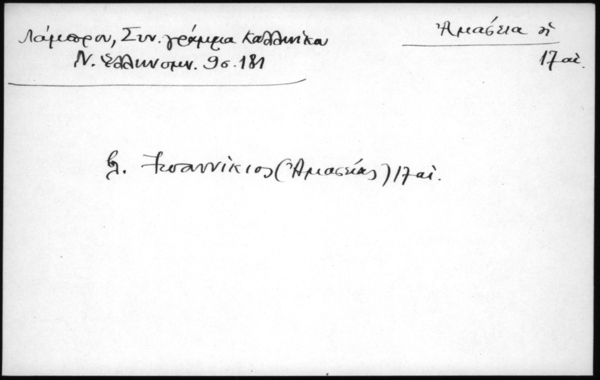 Λάμπρου, Συν. γράμμα Καλλινίκου
Ν. Ἑλληνομν. 9 σ. 181
Ἀμάσεια ἡ
17 αἰ.
Ἰωαννίκιος (Ἀμασείας) 17 αἰ.